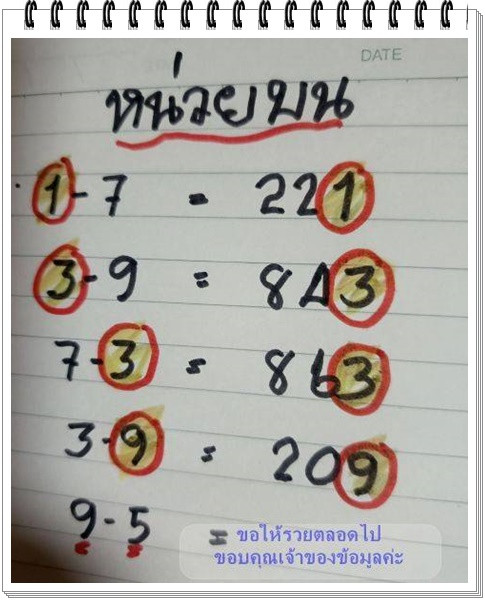 DATE
หน่วยบน
1-7 = 221
3-9 = 843
7-3 = 863
3-9 = 209
9-5 =
ขอให้รวยตลอดไป
ขอบคุณเจ้าของข้อมูลค่ะ